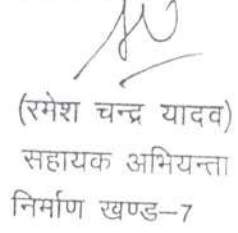 (रमेश चन्द्र यादव)
सहायक अभियन्ता
निर्माण खण्ड–7